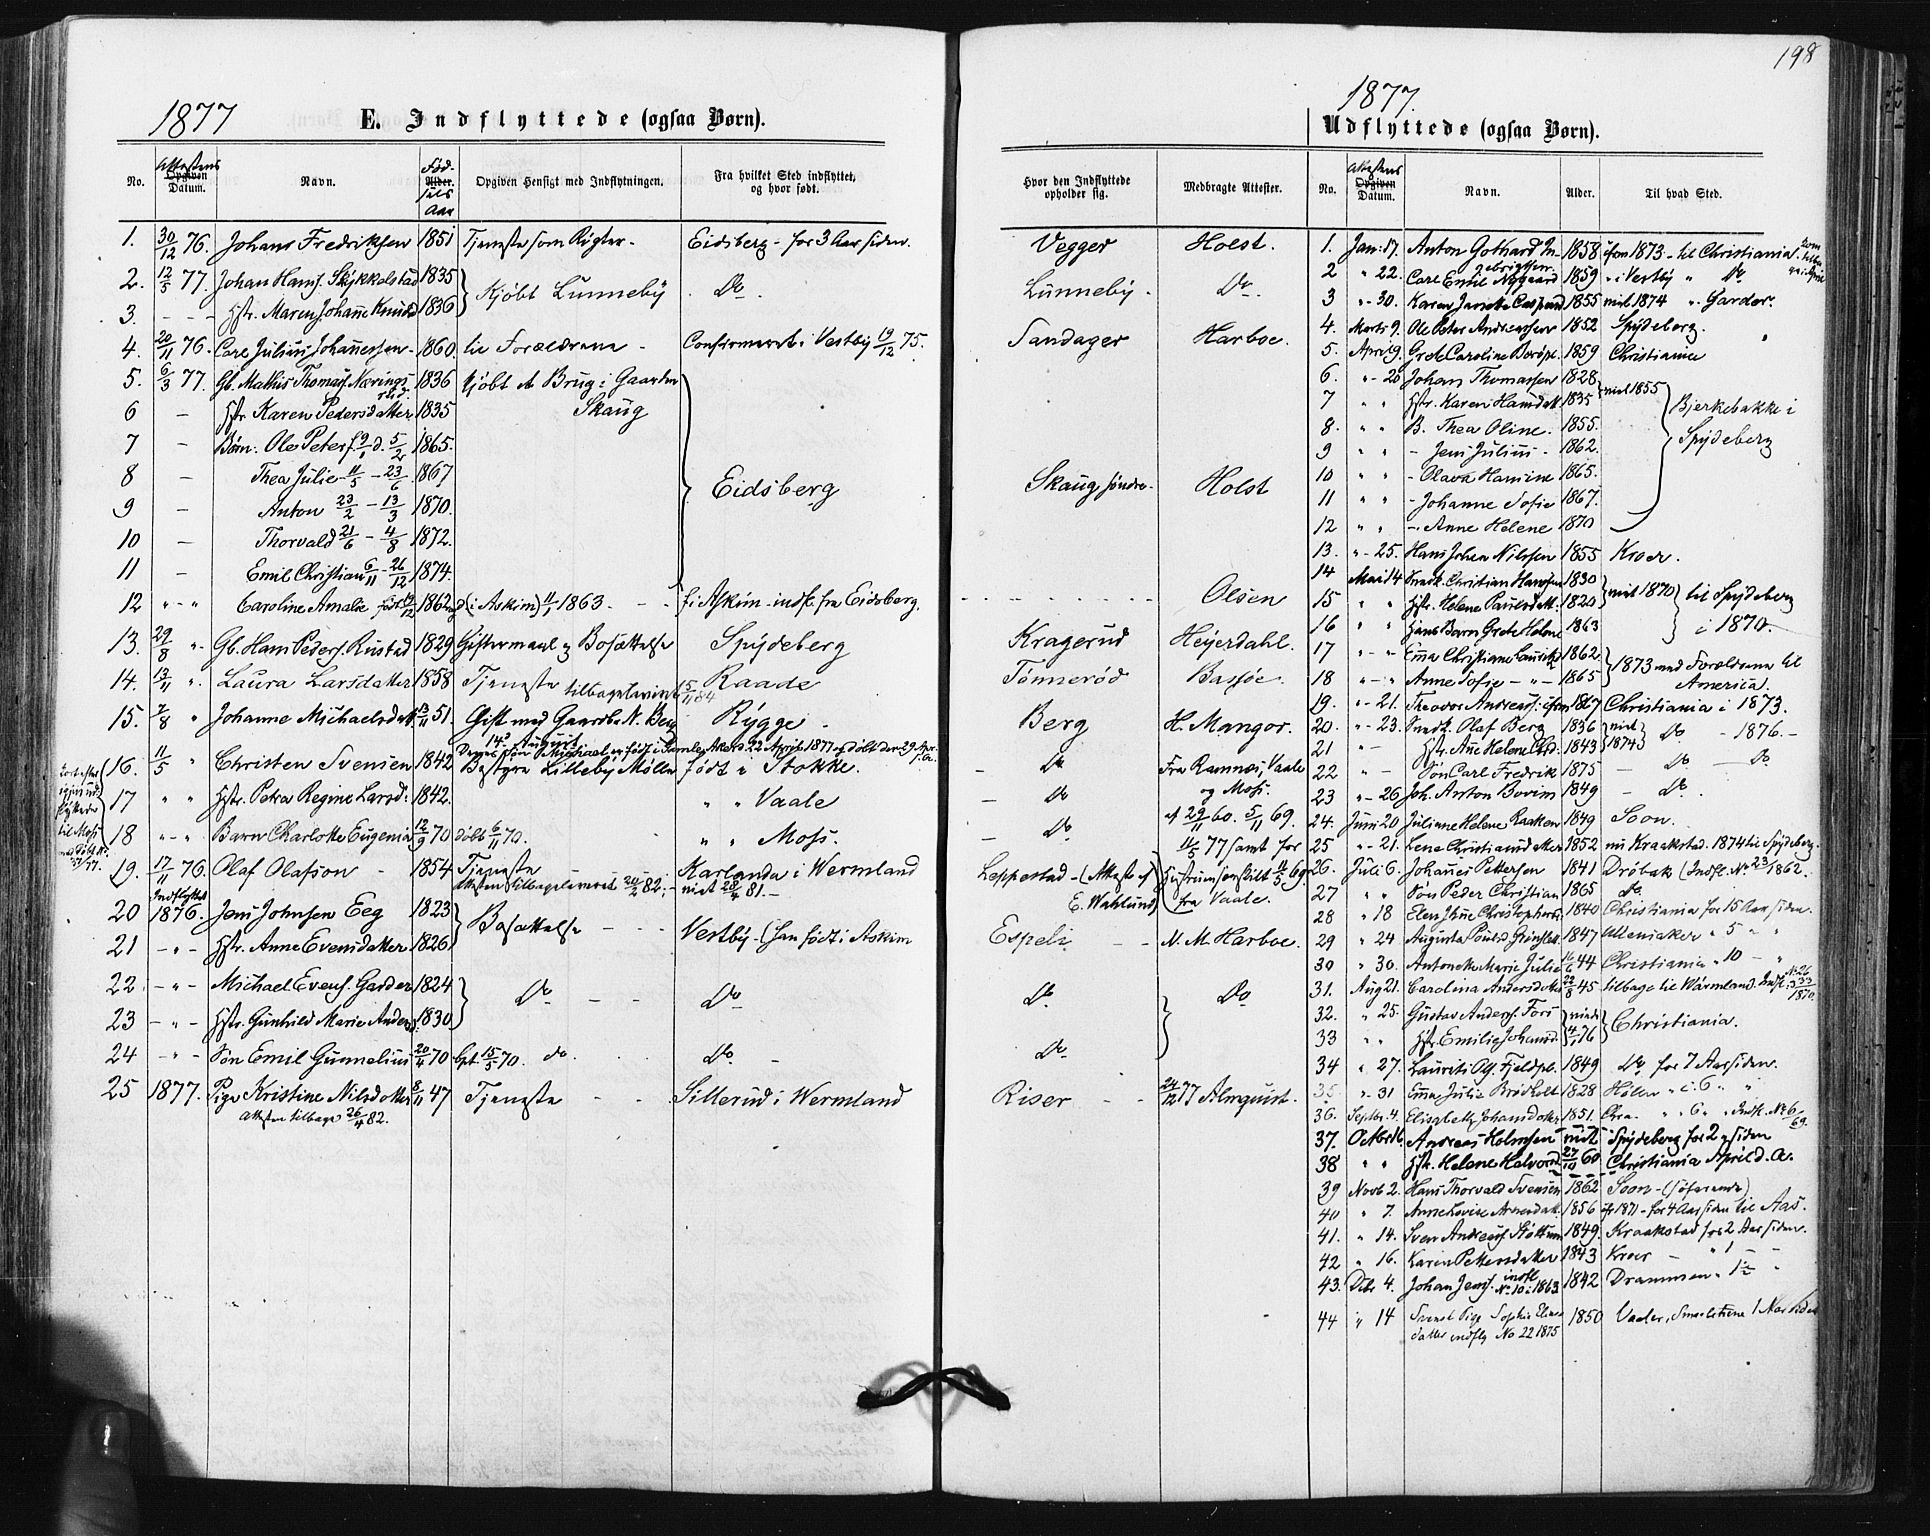 198
1877
E. Indflyttede (ogsaa Børn).
No. Attestens Opgiven Datum. Navn. Fødselsaar Alder. Opgiven Hensigt med Indflytningen. Fra hvilket Sted indflyttet, og hvor født. Hvor den Indflyttede opholder sig. Medbragte Attester.
1. 30/12 76. Johans Fredriksen 1851 Tjeneste som Røgter - Eidsberg - for 3 Aar siden. Vegger Holst.
2. 12/5 77. Johan Hans. Skykkelstad 1835 Kjøbt Lunneby Do Lunneby Do
3. Hstr. Maren Johane Knudsd 1836
4. 20/11 76. Carl Julius Johannessen 1860 til Forældrene - Confirmeret i Vestby 19/12 75. Sandager Harboe.
5. 6/3 77. Gb. Mathis Thomas. Nørings 1836 kjøbt et Brug i Gaarden Skaug Eidsberg Skaug søndre Holst
6 - Hstr. Karen Pedersdatter 1835
7 - Børn: Ole Peter f. 9/1 d. 5/2 1865.
8 - Thea Julie 11/5 - 23/6 1867
9 - Anton 23/2 - 13/3 1870.
10 - Thorvald 21/6 - 4/8 1872.
11 - Emil Christian 6/11 - 26/12 1874.
12 " - " Caroline Amalie født 19/12 1862 (i Askim) 11/1 1863. f. i Askim - indfl. fra Eidsberg. Olsen
13. 29/8 " Gb. Hans Peders. Rustad 1829 Giftermaal og Bosættelse Spydeberg Kragerud Heyerdahl.
14. 13/11 " Laura Larsdatter 1858 Tjeneste tilbageleveret 15/11 84 Raade Tønnerød Bassøe.
15. 2/8 " Johanne Michaelsdatt 13/11 51. Gift med Gaardbr. N. Berg 14de August Rygge - Berg H. Mangor.
Deres Søn Michael er født i Gamle Akers 22 April 1877 og døbt der 29 Apr.
16. 11/5 " Christen Svensen 1842 Bestyre Lilleby Mølle født i Stokke. Do Fra Ramnes, Vaale og Moss.
17 " " Hstr. Petra Regine Larsd: 1842. " " Vaale Do
18 " - " Barn Charlotte Eugenia 12/9 70 døbt 6/11 70. " " Moss. Do af 29/11 60. 5/11 69. 11/5 77 samt for
19. 17/11 76. Olaf Olafson - 1854 Tjeneste Karlanda i Wermland Leppestad - (Attest af E. Wahlund) Hustruen fra Vaale.
Attesten tilbageleveret 20/2 82.
20 Indflyttet 1876. Jens Johnsen Eeg 1823 Bosættelse Vestby - (han født i Askim Espeli N. M. Harboe.
21 - " - Hstr. Anne Evensdatter 1826
22 - " - Michael Evens. Garder 1824 Do Do Do Do
23 - " - Hstr. Gunhild Marie Anders. 1830
24 - " - Søn Emil Gunnelius 20/4 70 Gpt. 15/5 70. do. Do Do
25 1877. Pige Kristine Nilsdatter 8/11 47 Tjeneste Sillerud i Wermland Riser 24/12 77 Almquist.
Attesten tilbage 26/4 82.
1877.
Udflyttede (ogsaa Børn).
No. Attestens Opgiven Datum. Navn. Alder. Til hvad Sted.
1. Jan: 17. Anton Gothard 1858 1873 - til Christiania
2 " 22. Carl Emil Nygaard 1859 " i Vestby " Do
3 " - 30. Karen Janette Caspersd 1855 1874 " Garder.
4. Marts 9. Ole Peter Andreassen 1852 Spydeberg.
5. April 9. Grete Caroline 1859 Christiania
6. " - 20 Johan Thomassen 1828 1855 Bjerkebakke i Spydeberg
7 " " Hstr. Karen Hansdatt. 1835
8. " " B. Thea Oline. 1855.
9 " " - Jens Julius - 1862.
10 " " - Olava Hansine 1865.
11 " " - Johanne Sofie 1867.
12 " " - Anne Helene 1870
13. " - 25. Hans Johan Nilssen 1855 Kroer.
14 Mai 14 Snedk. Christian Hansen 1830 1870 til Spydeberg i 1870.
15 " " Hstr. Helene Paulsdatt. 1820
16 " " Hans Barn Grete Helene 1863
17 " - " Emma Christiane 1862. 1873 med Forældrene til America.
18 " - " Anne Sofie - " - 1865
19. " - 21. Theodor Andreas 1867 Christiania i 1873.
20. " - 23. Snedk. Olaf Berg 1836 1874 Do - 1876. -
21 " - Hstr. Ane Helene Chr. 1843
22 " - Søn Carl Fredrik 1875 - Do - Do
23 " - 26 Joh. Anton Bovim 1849 - Do
24. Juni 20 Juliane Helene Raaken 1849 Soon.
25 " - 21. Lene Christiansdatter 1852 Kraakstad. 1874 til Spydeberg.
26. Juli 6. Johannes Pettersen 1841 Drøbak (Indfl. No. 23 1862.
27 " " Søn Peder Christian 1865 do.
28 " 18 Elen Jhne Christophers. 1840 Christiania for 15 Aar siden.
29 " 24 Augusta 1847 Ullensaker " 5 " "
30 " 30. Antonette Marie Julie 16/6 44 Christiania " 10 - "
31. Aug 21. Carolina Andersdatter 22/8 45 tilbage til Wärmland. Indfl. 1870.
32. " 25. Gustav Anders. Fors Christiania.
33 " " Hstr. Emilie Johansd.
34 " 27. Laurits Og. Fjeldpl. 1849 Do for 7 Aar siden.
35 " 31 Emma Julie Brødholt 1828 Hølen " 6 " "
36. Septbr. 4. Elisabeth Johansdatter 1851. Chra. " " 6 " Indfl. No 6/69.
37. Octbr 16. Andreas Holmsen Spydeberg for 2 siden
38 " " Hstr. Helene Halvorsd. 27/11 60 Christiania April d. A.
39 Novb 2. Hans Thorvald Svensen 1862 Soon - (søfarende)
40 " 7. Anne Lovise Arnesdatt. 1856 1871 - for 4 Aar siden til Aas.
41. " 14. Sven Andreas. Støttum 1849. Kraakstad for 2 Aar siden.
42 " 16. Karen Pettersdatter 1843 Kroer - " 1 - -
43. Dcbr 4. Johan Jens. indfl No 10 i 1863 1842 Drammen " 1½ "
44 " 14 Svensk Pige Sophia Elias datter indfl. No 22 1875 1850 Vaaler, Smaalenene 1 Aar siden